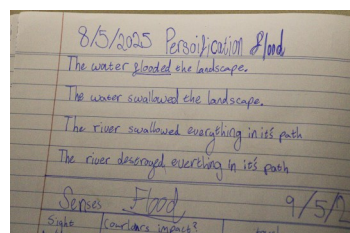 8/5/2025 Persoification Flood
The water flooded the landscape.
The water swallowed the landscape.
The river swallowed everything in it's path
The river destroyed everthing in it's path
Senses Flood 9/5/2
Sight Courlours impact?